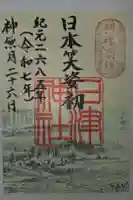 日本笑姿初
紀元二六八五年
(令和七年)
神無月二六日
神社